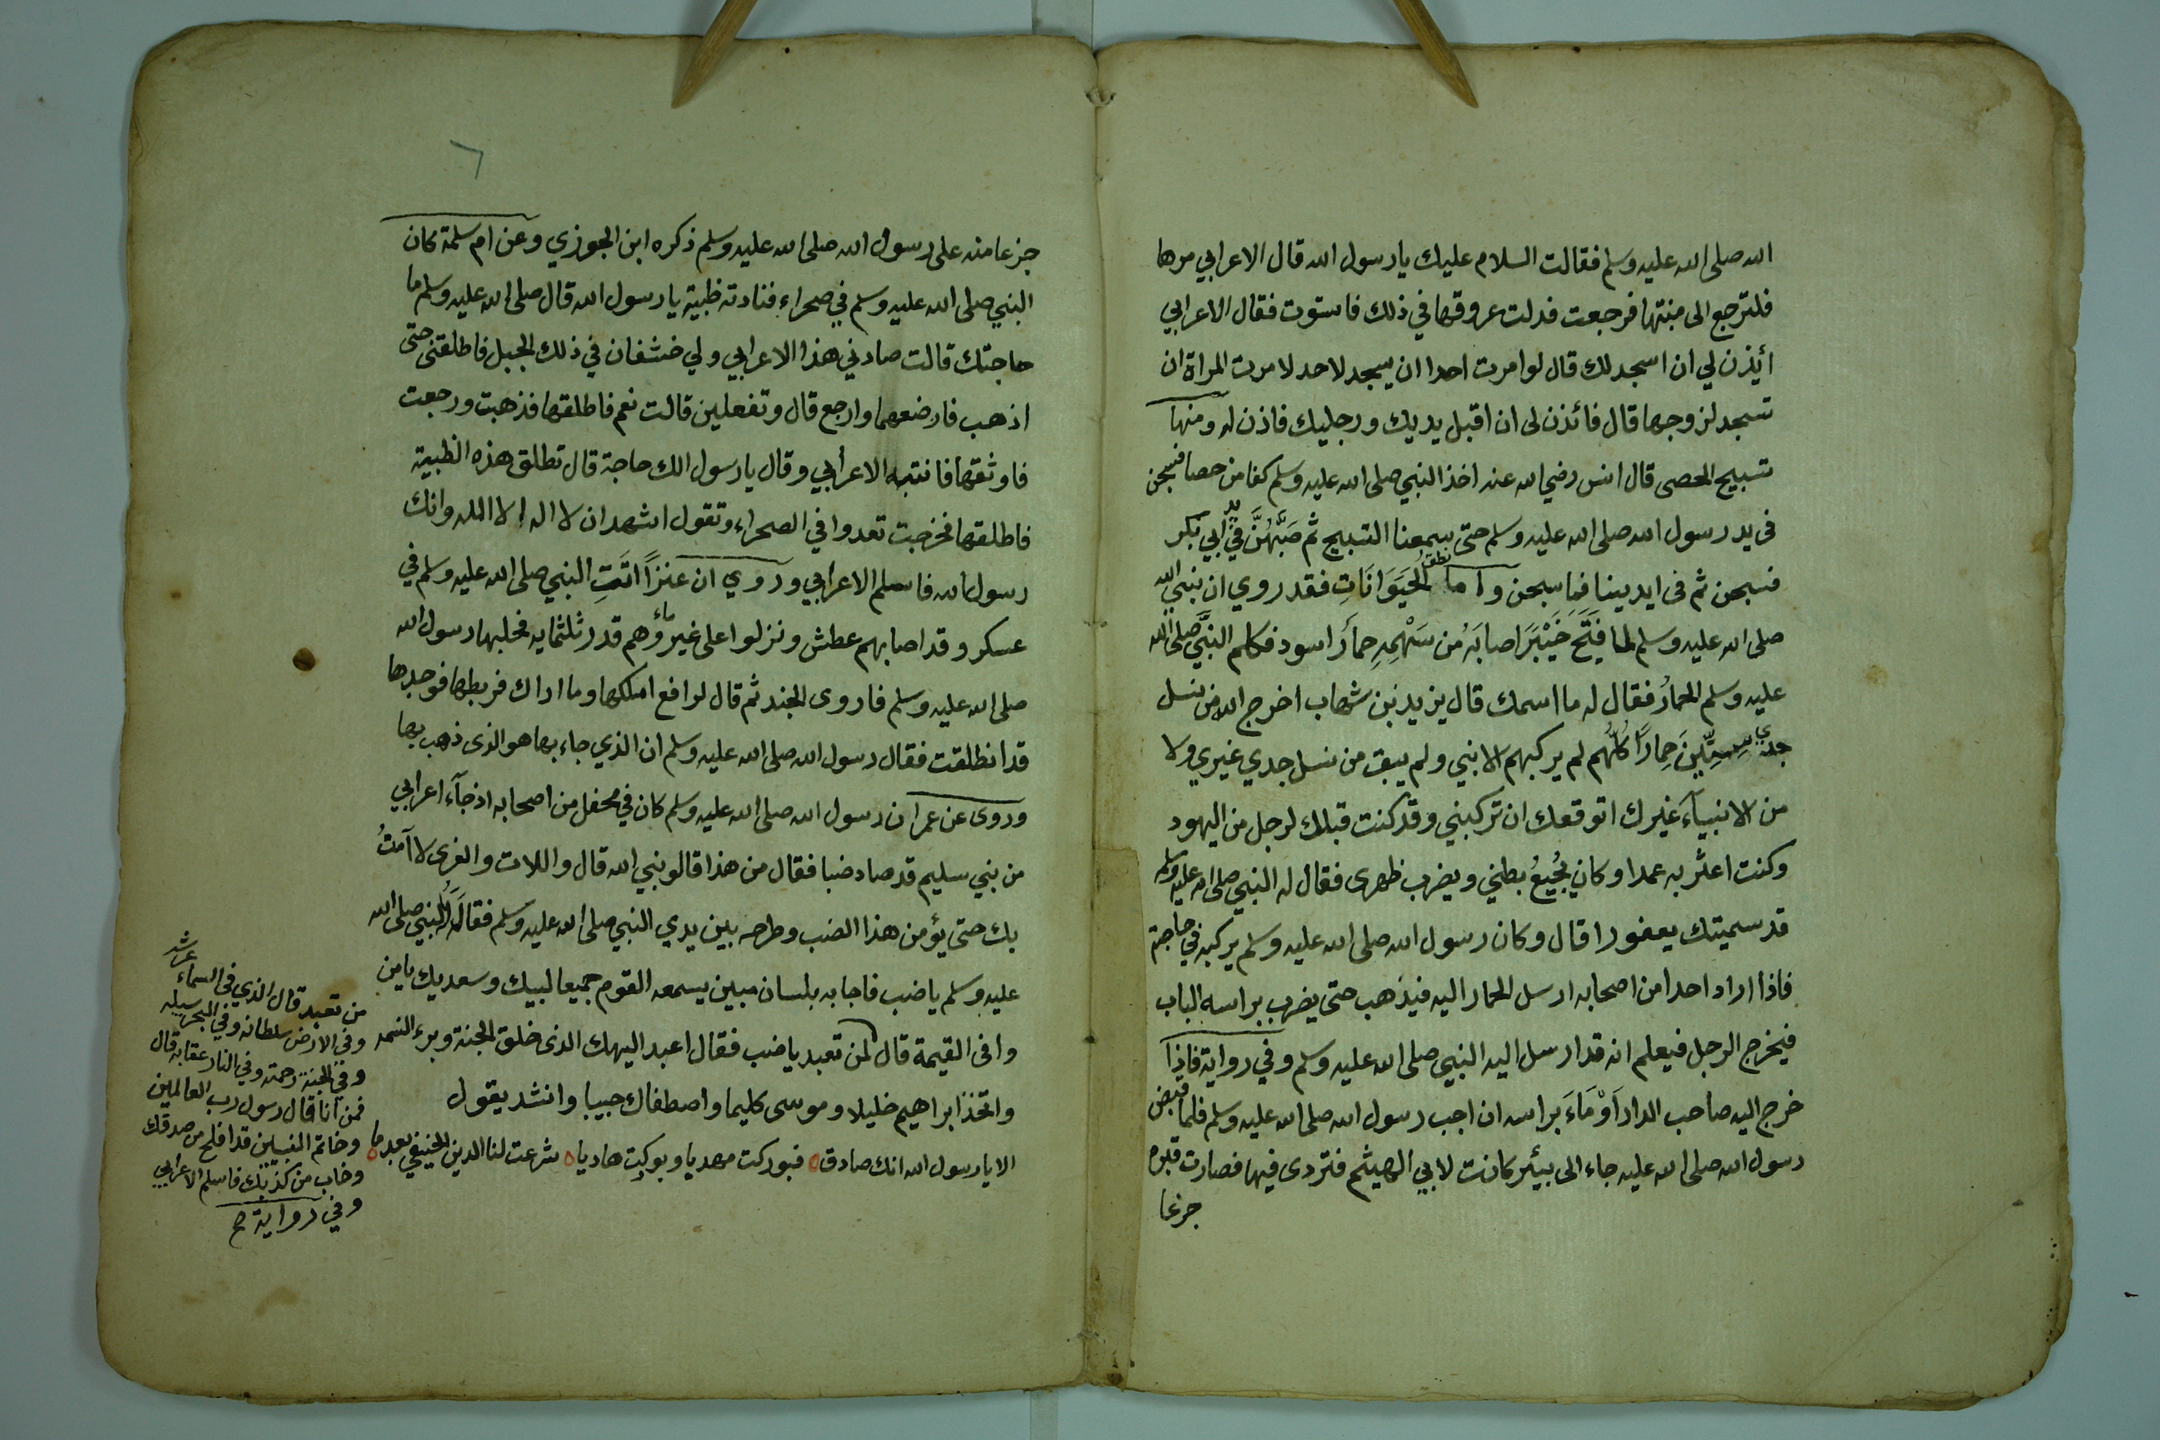 الله صلى الله عليه وسلم فقالت السلام عليك يا رسول الله قال الاعرابي مرها
فلترجع الى منبتها فرجعت فدلت عروقها في ذلك فاستوت فقال الاعرابي
ائذن لي ان اسجد لك قال لو امرت احدا ان يسجد لاحد لامرت المراة ان
تسجد لزوجها قال فائذن لى ان اقبل يديك ورجليك فاذن له ومنها
تسبيح الحصى قال انس رضي الله عنه اخذ النبي صلى الله عليه وسلم كفا من حصا فسبحن
فى يد رسول الله صلى الله عليه وسلم حتى سمعنا التسبيح ثم صَبَّهُنَّ في يد ابي بكر
فسبحن ثم فى ايدينا فما سبحن واما نطق الحَيَوَانَاتِ فقد روي ان نبي الله
صلى الله عليه وسلم لما فَتَحَ خَيْبَرَ اصابَهُ من سَهْمِهِ حمارٌ اسود فكلم النبيَّ صلى الله
عليه وسلم الحمارُ فقال له ما اسمك قال يزيد بن شهاب اخرج الله من نسل
جدي سِتِّينَ حِمارًا كُلُّهُم لم يركبهم الا بني ولم يبق من نسل جدي غيري ولا
من الانبيآء غيرك اتوقعك ان تركبني وقد كنت قبلك لرجل من اليهود
وكنت اعثر به عمدا وكان يُجيعُ بطني ويضرب ظهرى فقال له النبي صلى الله عليه وسلم
قد سميتك يعفورا قال وكان رسول الله صلى الله عليه وسلم يركبه في حاجة
فاذا اراد احدا من اصحابه ارسل الحمار اليه فيذهب حتى يضرب براسه الباب
فيخرج الرجل فيعلم انه قد ارسل اليه النبي صلى الله عليه وسلم وفي رواية فاذا
خرج اليه صاحب الدار اَوْمَاءَ براسه ان اجب رسول الله صلى الله عليه وسلم فلما قبض
رسول الله صلى الله عليه جاء الى بيئر كانت لابي الهيثم فتردى فيها فصارت قبره
جزعا
٦
جزعا منه على رسول الله صلى الله عليه وسلم ذكره ابن الجوزي وعن ام سلمة كان
النبي صلى الله عليه وسلم في صحراء فنادته ظبية يا رسول الله قال صلى الله عليه وسلم ما
حاجتك قالت صادني هذا الاعرابي ولي خشفان في ذلك الجبل فاطلقنى حتى
اذهب فارضعهما وارجع قال وتفعلين قالت نعم فاطلقها فذهبت ورجعت
فاوثقها فانتبه الاعرابي وقال يا رسول الك حاجة قال تطلق هذه الظبية
فاطلقها فخرجت تعدوا في الصحراء وتقول اشهد ان لا اله الا الله وانك
رسول الله فاسلم الاعرابي وروي ان عنزًا اتَتِ النبي صلى الله عليه وسلم في
عسكر وقد اصابهم عطش ونزلوا على غير ماءٍ وهم قدر ثلثمايه فحلبها رسول الله
صلى الله عليه وسلم فاروى الجند ثم قال لرافع املكها وما اراك فربطها فوجدها
قد انطلقت فقال رسول الله صلى الله عليه وسلم ان الذي جاء بها هو الذى ذهب بها
وروى عن عمر ان رسول الله صلى الله عليه وسلم كان في محفل من اصحابه اذ جآء اعرابي
من بني سليم قد صاد ضبا فقال من هذا قالو نبي الله قال واللات والعزى لا آمنتُ
بك حتى يؤمن هذا الضب وطرحه بين يدي النبي صلى الله عليه وسلم فقال له النبي صلى الله
عليه وسلم يا ضب فاجابه بلسان مبين يسمعه القوم جميعا لبيك وسعديك يا من
وافى القيمة قال لمن تعبد يا ضب فقال اعبد الهك الذى خلق الجنة وبرء النسمه
واتخذ ابراهيم خليلا وموسى كليما واصطفاك حبيبا وانشد يقول
الا يا رسول الله انك صادق ٥ فبوركت مهديا وبوركت هاديا ٥ شرعت لنا الدين الحنيفي بعد ما ٥
عرشه
من تعبد قال الذي في السماء
وفي الارض سلطانه وفي البحر سبيله
وفي الجنة رحمته وفي النار عقابه قال
فمن انا قال رسول رب العالمين
وخاتم النبيين قد افلح من صدقك
وخاب من كذبك فاسلم الاعرابي
وفي رواية صح